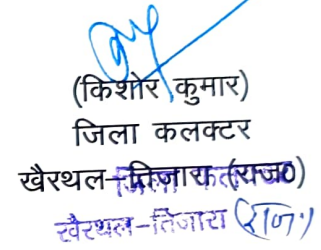 (किशोर कुमार)
जिला कलक्टर
खैरथल–तिजारा (राज0)
जिला कलक्टर
खैरथल–तिजारा (राज॰)